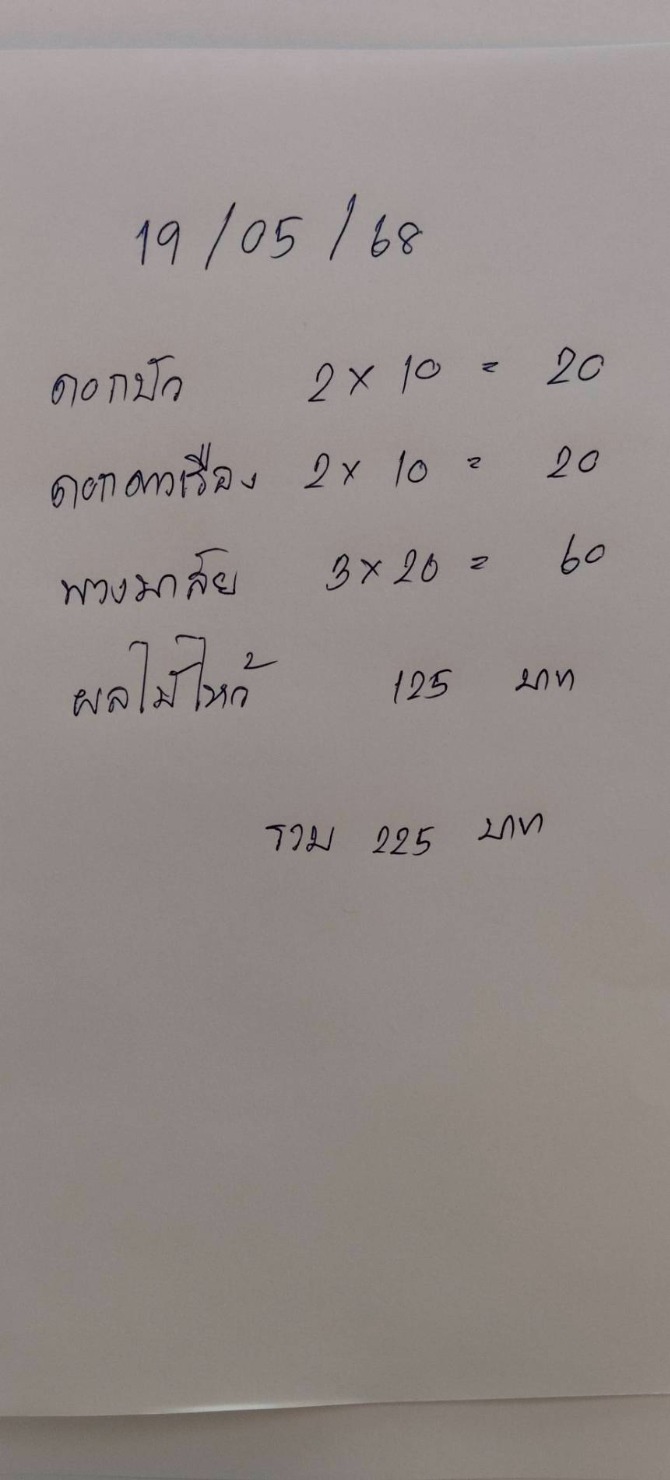 19/05/68
ดอกบัว 2 x 10 = 20
ดอกดาวเรือง 2 x 10 = 20
พวงมาลัย 3 x 20 = 60
ผลไม้ไหว้ 125 บาท
รวม 225 บาท